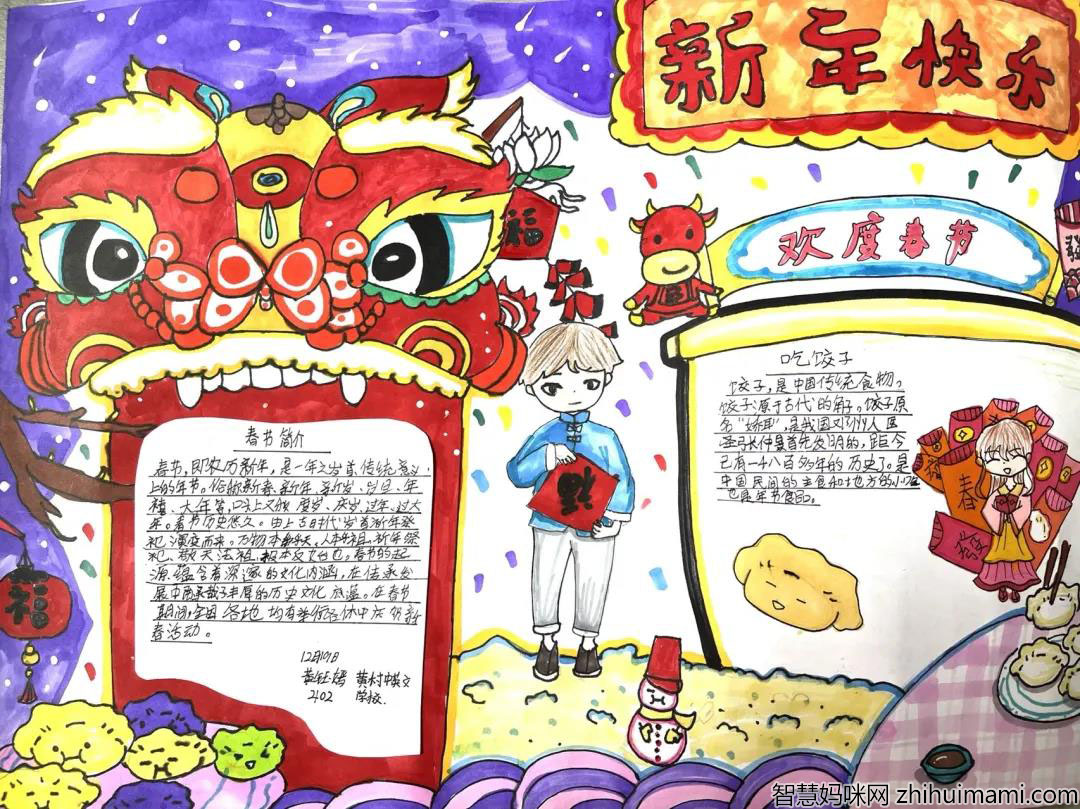 新年快乐
欢度春节
福
福
福
春
發
發
吃饺子
饺子,是中国传统食物。
饺子源于古代的角子。饺子原
名"娇耳",是我国
张仲景首先发明的,距今
已有一千八百多年的历史了。是
中国民间的主食和地方的小吃
也是年节食品。
春节简介
春节,即农历新年,是一年之岁首传统意义
上的年节。俗称新春、新年、新岁、岁旦、年
禧、大年等,口头上又称度岁、庆岁、过年、过大
年。春节历史悠久。由上古时代岁首祈年祭
祀演变而来。万物本乎天,人本乎祖,祈年祭
祀、敬天法祖,报本反始也。春节的起
源蕴含着深邃的文化内涵,在传承发
展中承载了丰厚的历史文化底蕴。在春节
期间,全国各地均有举行各种庆贺新
春活动。
12月19日
黄村中英文
2402 学校.
智慧妈咪网 zhihuimami.com